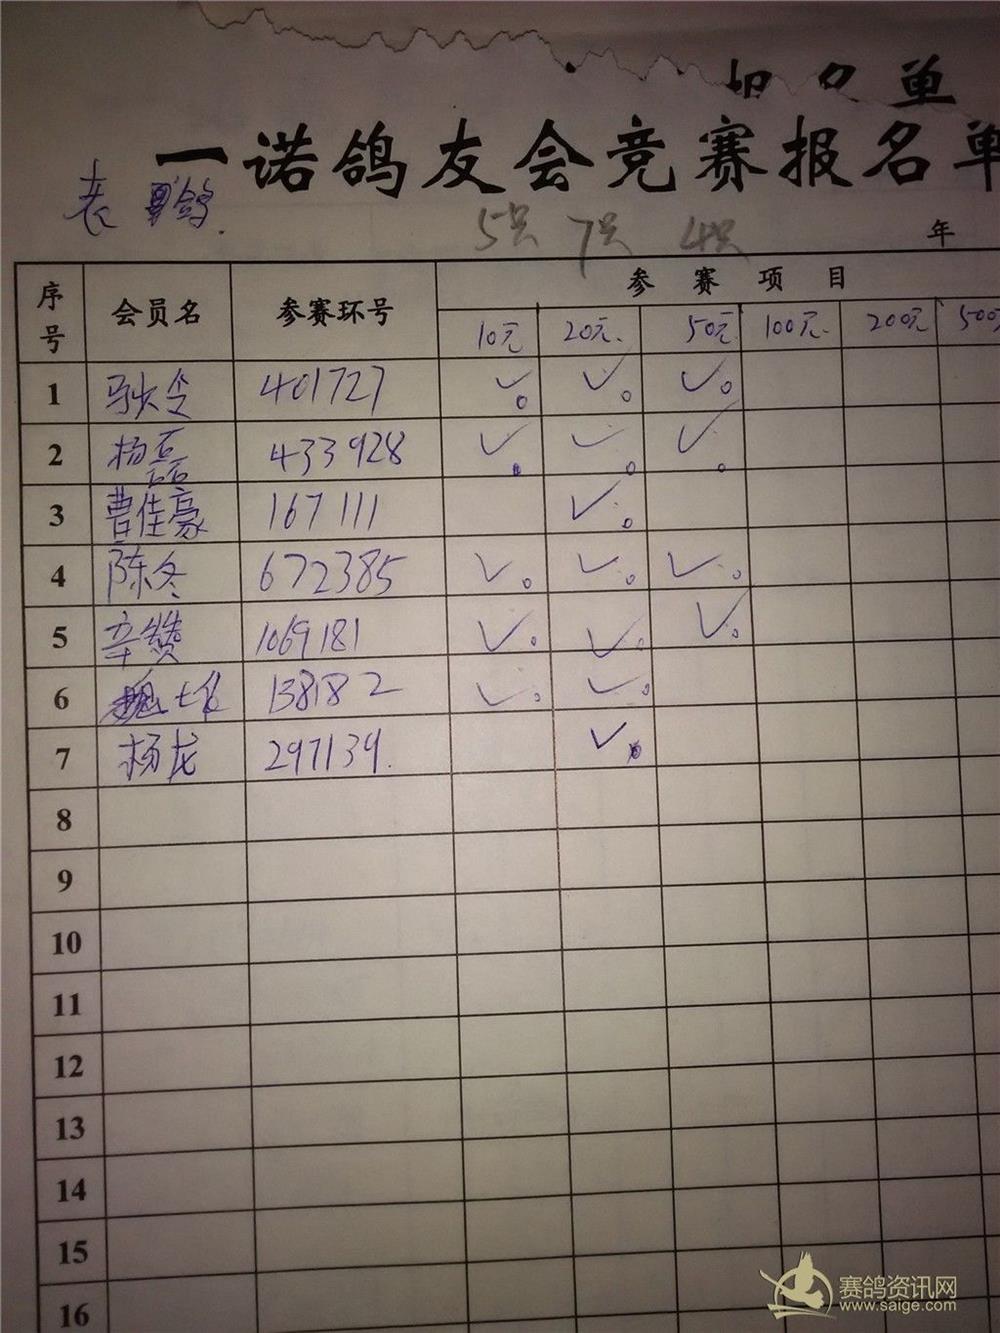 单
一诺鸽友会竞赛报名单
老 鸽.
5只 7只 4只
年
序号 会员名 参赛环号 参赛项目
10元 20元. 50元 100元. 200元 500元
1 耿令 401727 ✓。 ✓。 ✓。
2 杨磊磊 433928 ✓。 ✓。 ✓。
3 曹佳豪 167111 ✓。
4 陈冬 672385 ✓。 ✓。 ✓。
5 辛赞 1069181 ✓。 ✓。 ✓。
6 138182 ✓。 ✓。
7 杨龙 297139. ✓。
8
9
10
11
12
13
14
15
16
赛鸽资讯网
www.saige.com